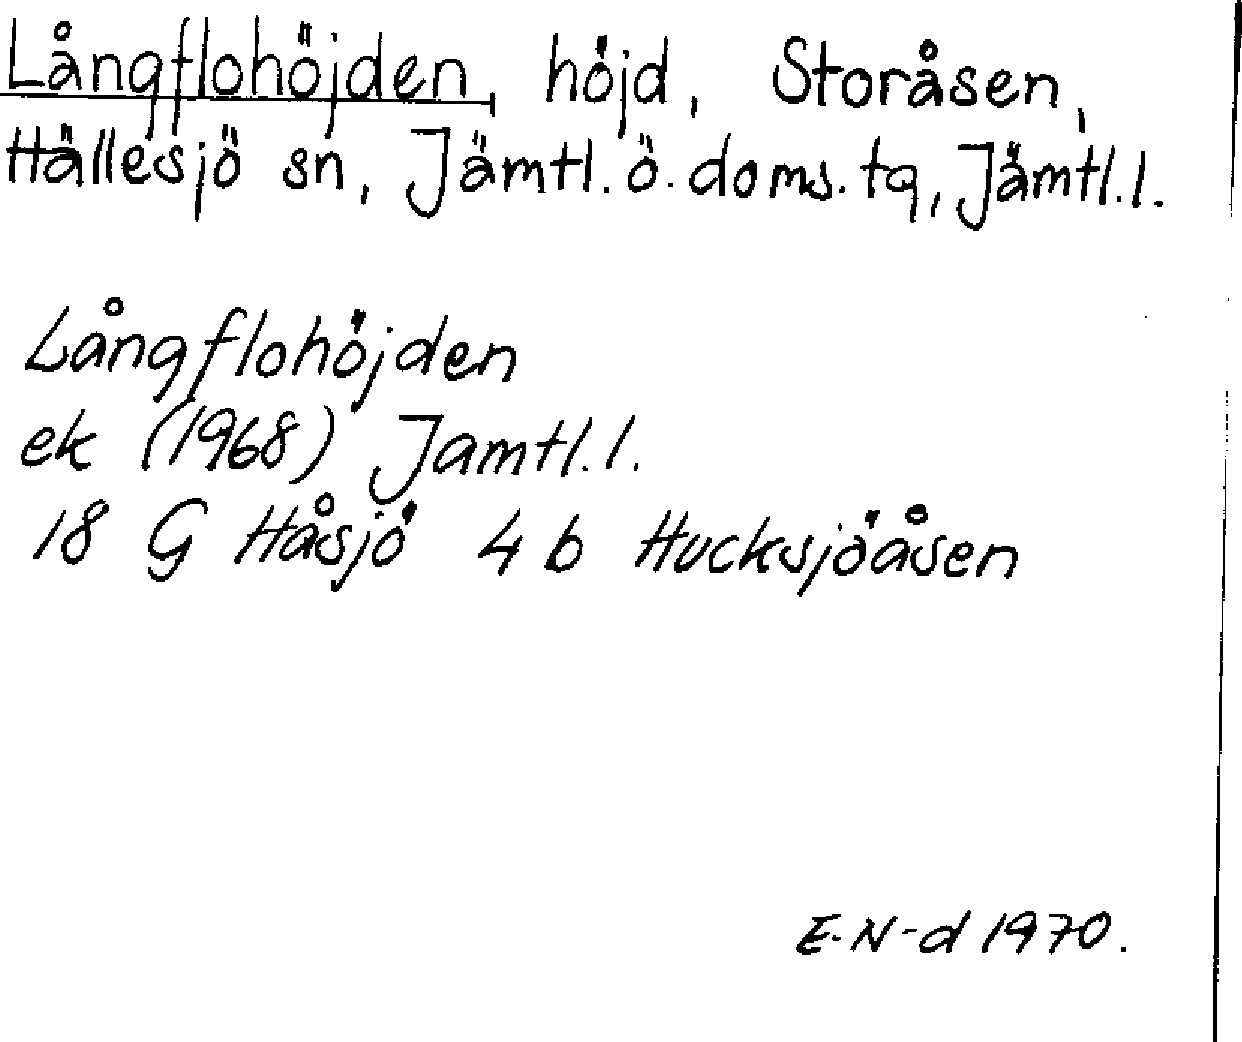 Långflohöjden, höjd, Storåsen,
Hällesjö sn, Jämtl. ö. doms. tg, Jämtl. l.
Långflohöjden
ek (1968) Jämtl. l.
18 G Håsjö 4 b Hucksjöåsen
E. N-d 1970.